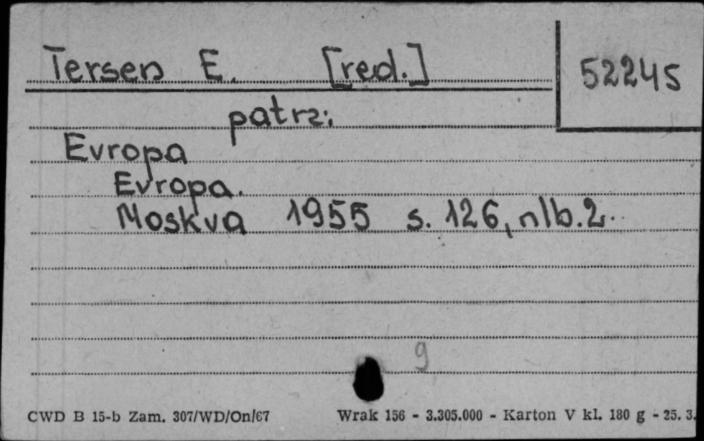 Tersen E. [red.]
52245
patrz:
Evropa
Evropa.
Moskva 1955 s. 126, nlb. 2.
9
CWD B 15-b Zam. 307/WD/On/67 Wrak 156 - 3.305.000 - Karton V kl. 180 g - 25. 3.